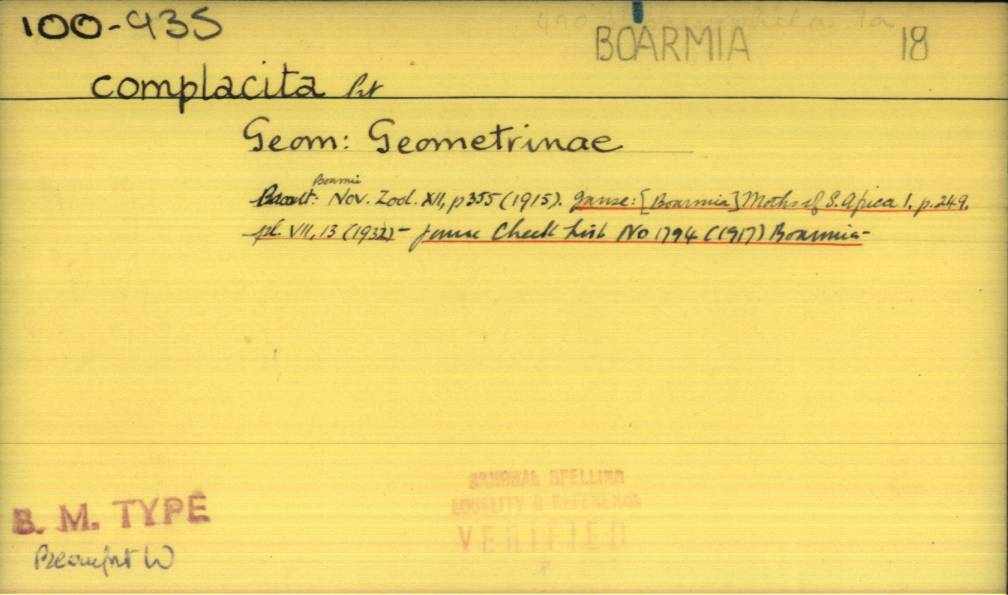 100-935
BOARMIA 18
complacita Prt
Geom: Geometrinae
Boarmia
Nov. Zool. XII, p355 (1915). Janse: [Boarmia] Moths of S. Africa 1. p.249,
pl. VII, 13 (1932) - Janse Check List No 1794 (1917) Boarmia -
ORIGINAL SPELLING
LOCALITY & REFERENCE
VERIFIED
B. M. TYPE
Beaufort W